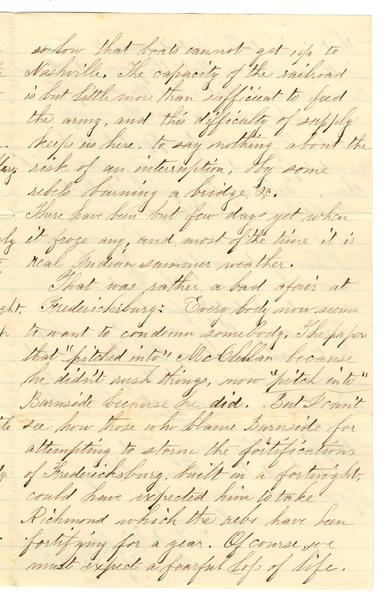 so low that boats cannot get up to
Nashville. The capacity of the railroad
is but little more than sufficient to feed
the army, and this difficulty of supply
keeps us here, to say nothing about the
risk of an interruption, by some
rebels burning a bridge, &c.
There have been but few days yet when
it froze any, and most of the time it is
real Indian summer weather.
That was rather a bad afair at
Fredericksburg: Every body now seems
to want to condemn somebody. The papers
that "pitched into" McClellan because
he didn't push things, now "pitch into"
Burnside because he did. But I can't
see how those who blame Burnside for
attempting to storm the fortifications
of Fredericksburg, built in a fortnight,
could have expected him to take
Richmond which the rebs have been
fortifying for a year. Of course, we
must expect a fearful loss of life.